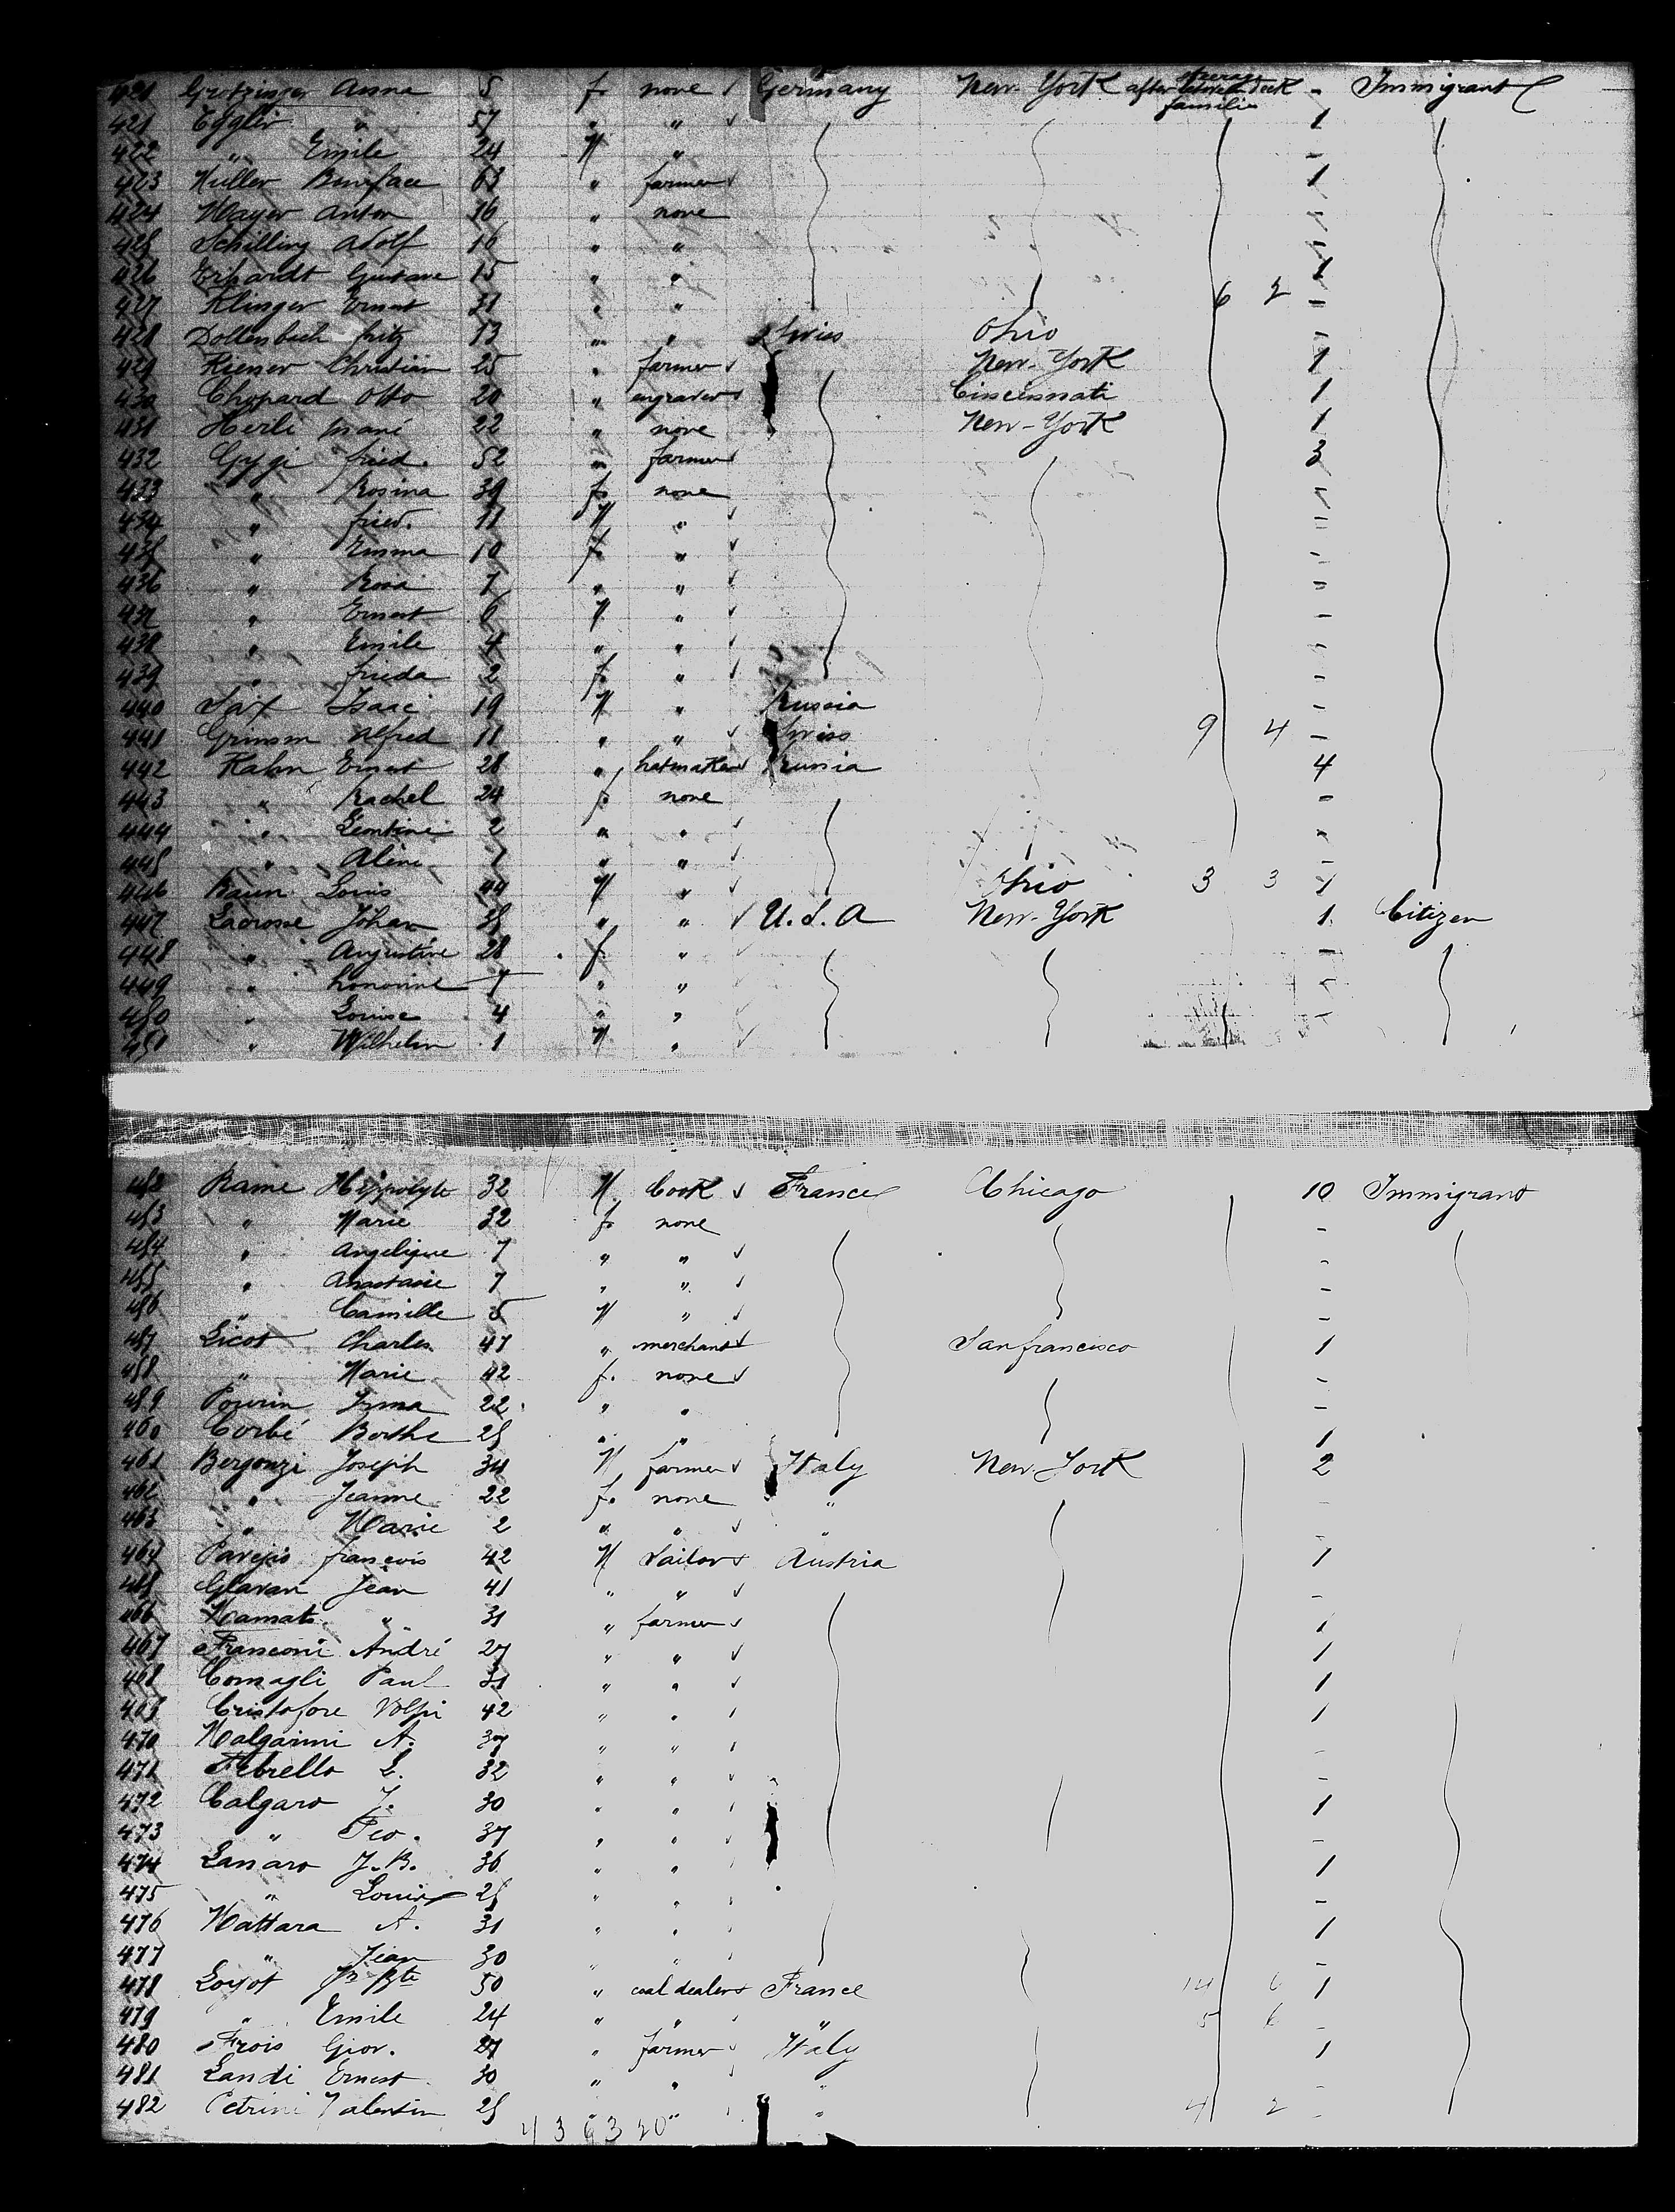 421 Grotzinger Anna 5 f. none Germany New-York after steerage between deck families - Immigrant
421 Eggler " 57 " " 1
422 " Emile 24 M " -
423 Muller Boniface 63 " farmer 1
424 Mayer Anton 16 " none -
425 Schilling Adolf 16 " " -
426 Erhardt Gustave 15 " " 1
427 Klinger Ernest 31 " " 6 2 -
428 Dollenbach fritz 13 " " Swiss Ohio -
429 Riener Christian 25 " farmer New-York 1
430 Chopard Otto 20 " engraver Cincinnati 1
431 Herli 22 " none New-York 1
432 Gygi fried. 52 " farmer 3
433 " Rosina 39 f. none -
434 " fried. 11 M " -
435 " Emma 10 f. " -
436 " Rosa 7 " " -
437 " Ernest 6 M " -
438 " Emile 4 " " -
439 " frieda 2 f. " -
440 Sax Isaac 19 M " Russia -
441 Alfred 11 " " Swiss 9 4 -
442 Kahn Ernest 28 " hatmaker Russia 4
443 " Rachel 24 f. none -
444 " Leontine 2 " " -
445 " Aline 1 " " -
446 Baun Louis 44 M " Ohio 3 3 1
447 Lacrosse Johan 35 " " U.S.A New-York 1. Citizen
448 " Augustine 28 f. " -
449 " honorine 7 " " -
450 " Louise 4 " " -
451 " Wilhelm 1 M "
452 Rame Hippolyte 32 M. Cook France Chicago 10 Immigrant
453 " Marie 32 f. none -
454 " Angelique 7 " " -
455 " Anastasie 7 " " -
456 " Camille 5 M " -
457 Licot Charles 47 " merchant San francisco 1
458 " Marie 42 f. none -
459 Irma 22 " " -
460 Corbé Berthe 25 " " 1
461 Bergonzi Joseph 34 M farmer Italy New-York 2
462 " Jeanne 22 f. none " -
463 " Marie 2 " " " -
464 françois 42 M Sailor Austria 1
465 Glavan Jean 41 " " -
466 " 31 " farmer 1
467 Franconi André 27 " " 1
468 Comagli Paul 31 " " 1
469 Cristofore Volpi 42 " " 1
470 Malgarini A. 37 " " -
471 Febrello L. 32 " " -
472 Calgaro J. 30 " " 1
473 " 37 " " -
474 Lanaro J.B. 36 " " 1
475 " Louis 25 " " -
476 Mattara A. 31 " " 1
477 " Jean 30 " " -
478 Loyot Jn Bte 50 " coal dealer France 14 6 1
479 " Emile 24 " " " 5 6 -
480 Frois Giov. 27 " farmer Italy 1
481 Landi Ernest 30 " " " -
482 Petrini Valentin 25 " " " 4 2 -